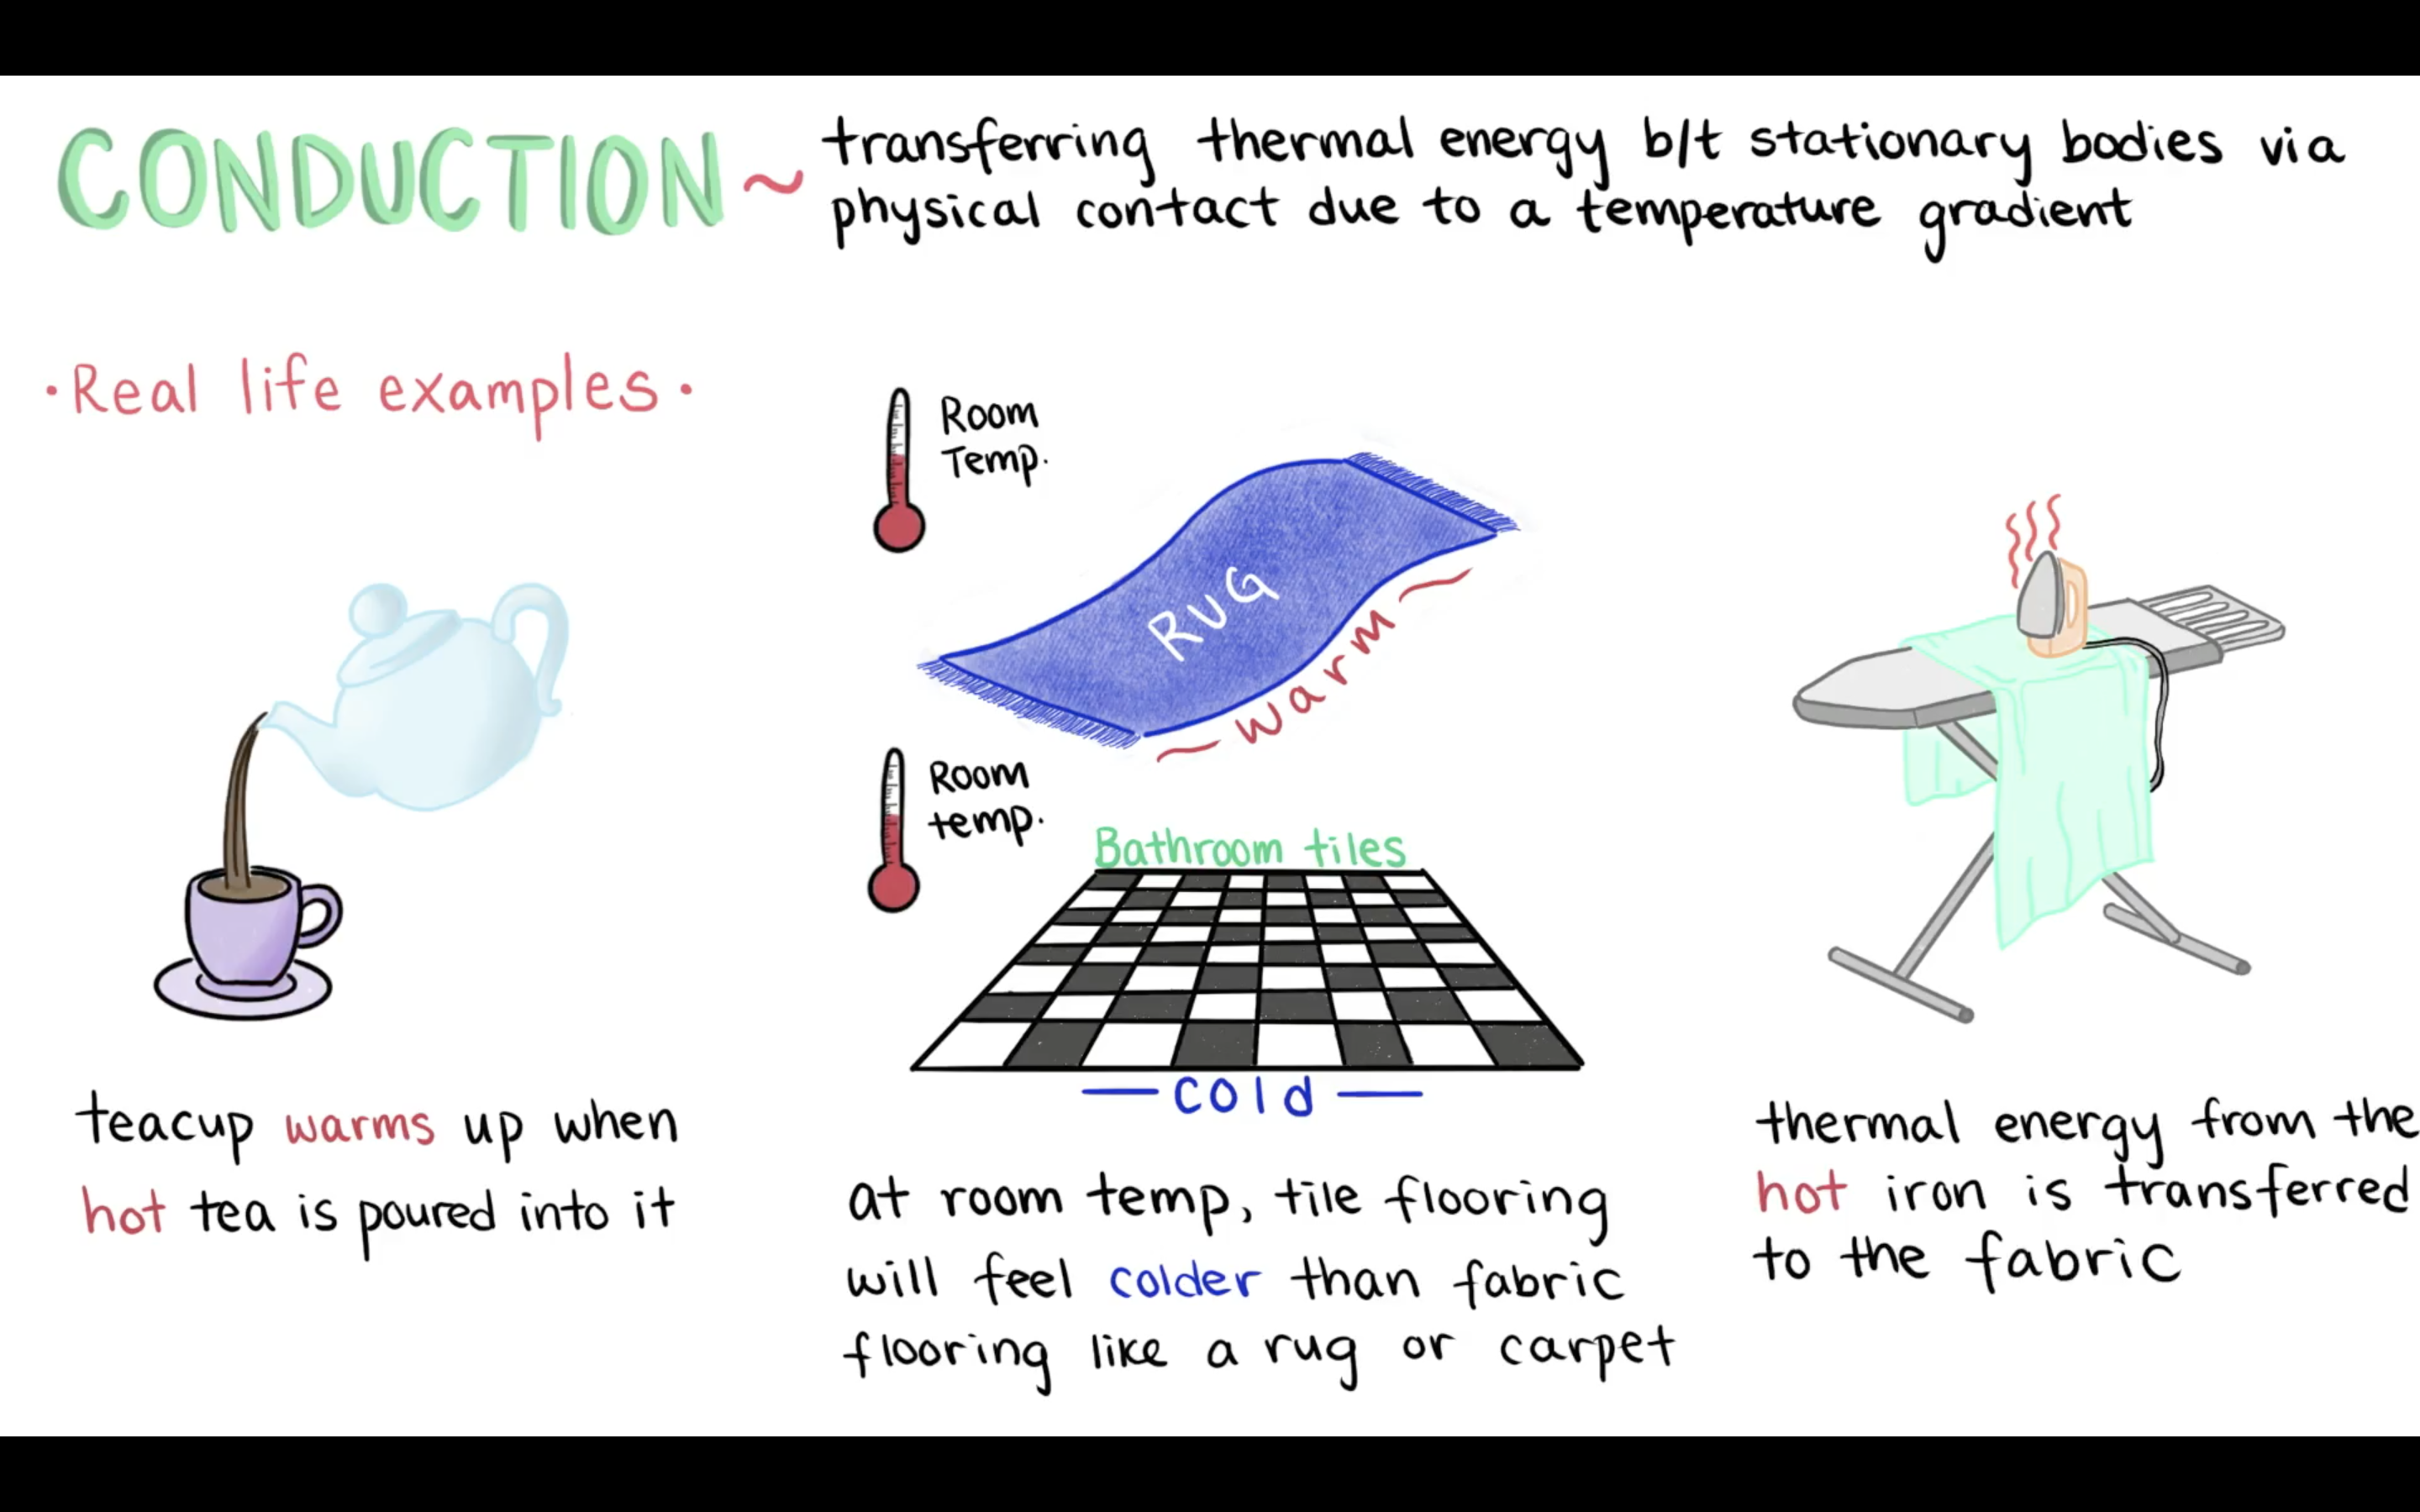 CONDUCTION ~ transferring thermal energy b/t stationary bodies via
physical contact due to a temperature gradient
• Real life examples •
Room
Temp.
RUG
~ warm ~
Room
temp.
Bathroom tiles
— cold —
teacup warms up when
hot tea is poured into it
at room temp, tile flooring
will feel colder than fabric
flooring like a rug or carpet
thermal energy from the
hot iron is transferred
to the fabric